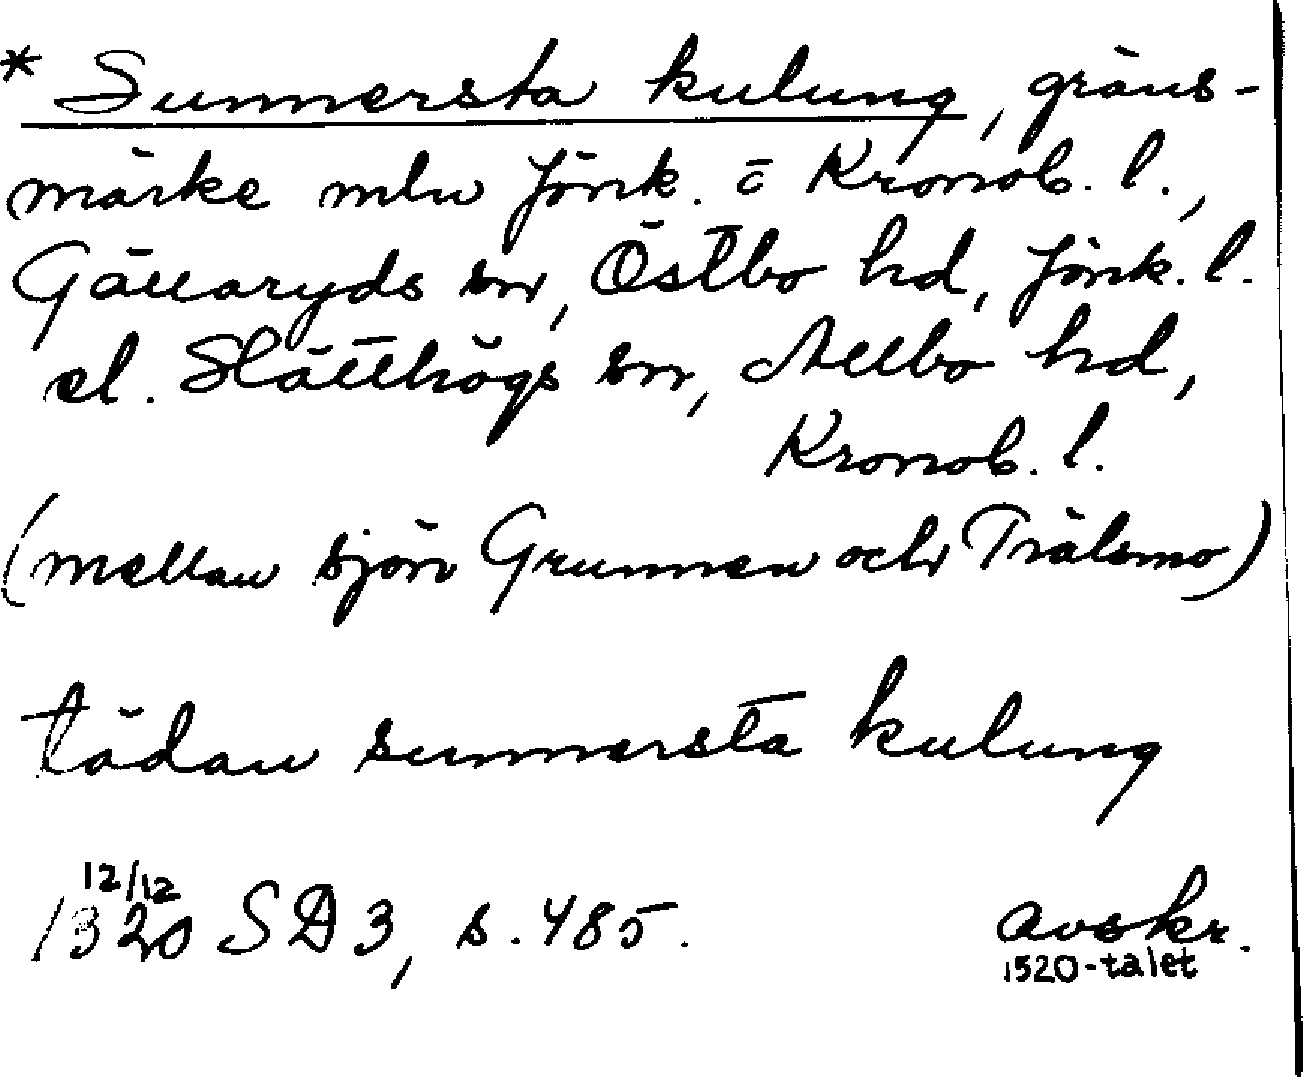 * Sunnersta kulung, gräns-
märke mlu Jönk. o Kronob. l.,
Gällaryds sn, Östbo hd, Jönk. l.
el. Slätthögs sn, Allbo hd,
Kronob. l.
(mellan sjön Grunnen och Trälsmo)
tädan sunnersta kulung
12/12
1320 SD 3, s. 485. avskr.
1520-talet